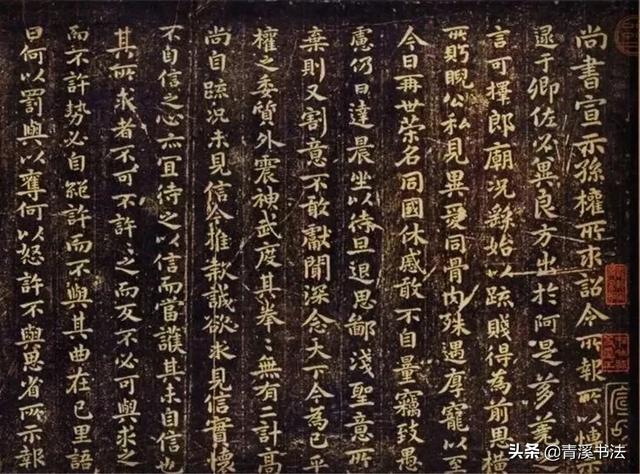 尚書宣示孫權所求詔令所報所以博
逮于卿佐必冀良方出於阿是芻蕘
言可擇郎廟況繇始以疏賤得為前恩橫
所眄睨公私見異愛同骨肉殊遇厚寵以至
今日再世榮名同國休慼敢不自量竊致愚
慮仍日達晨坐以待旦退思鄙淺聖意
棄則又割意不敢獻聞深念天下今為已平
權之委質外震神武度其拳〻無有二計高
尚自疏況未見信今推款誠欲求見信實懷
不自信之心亦宜待之以信而當護其未自信也
其所求者不可不許〻之而反不必可與求之
而不許勢必自絕許而不與其曲在己里語
曰何以罰與以奪何以怒許不與思省所示報
头条 @青溪书法